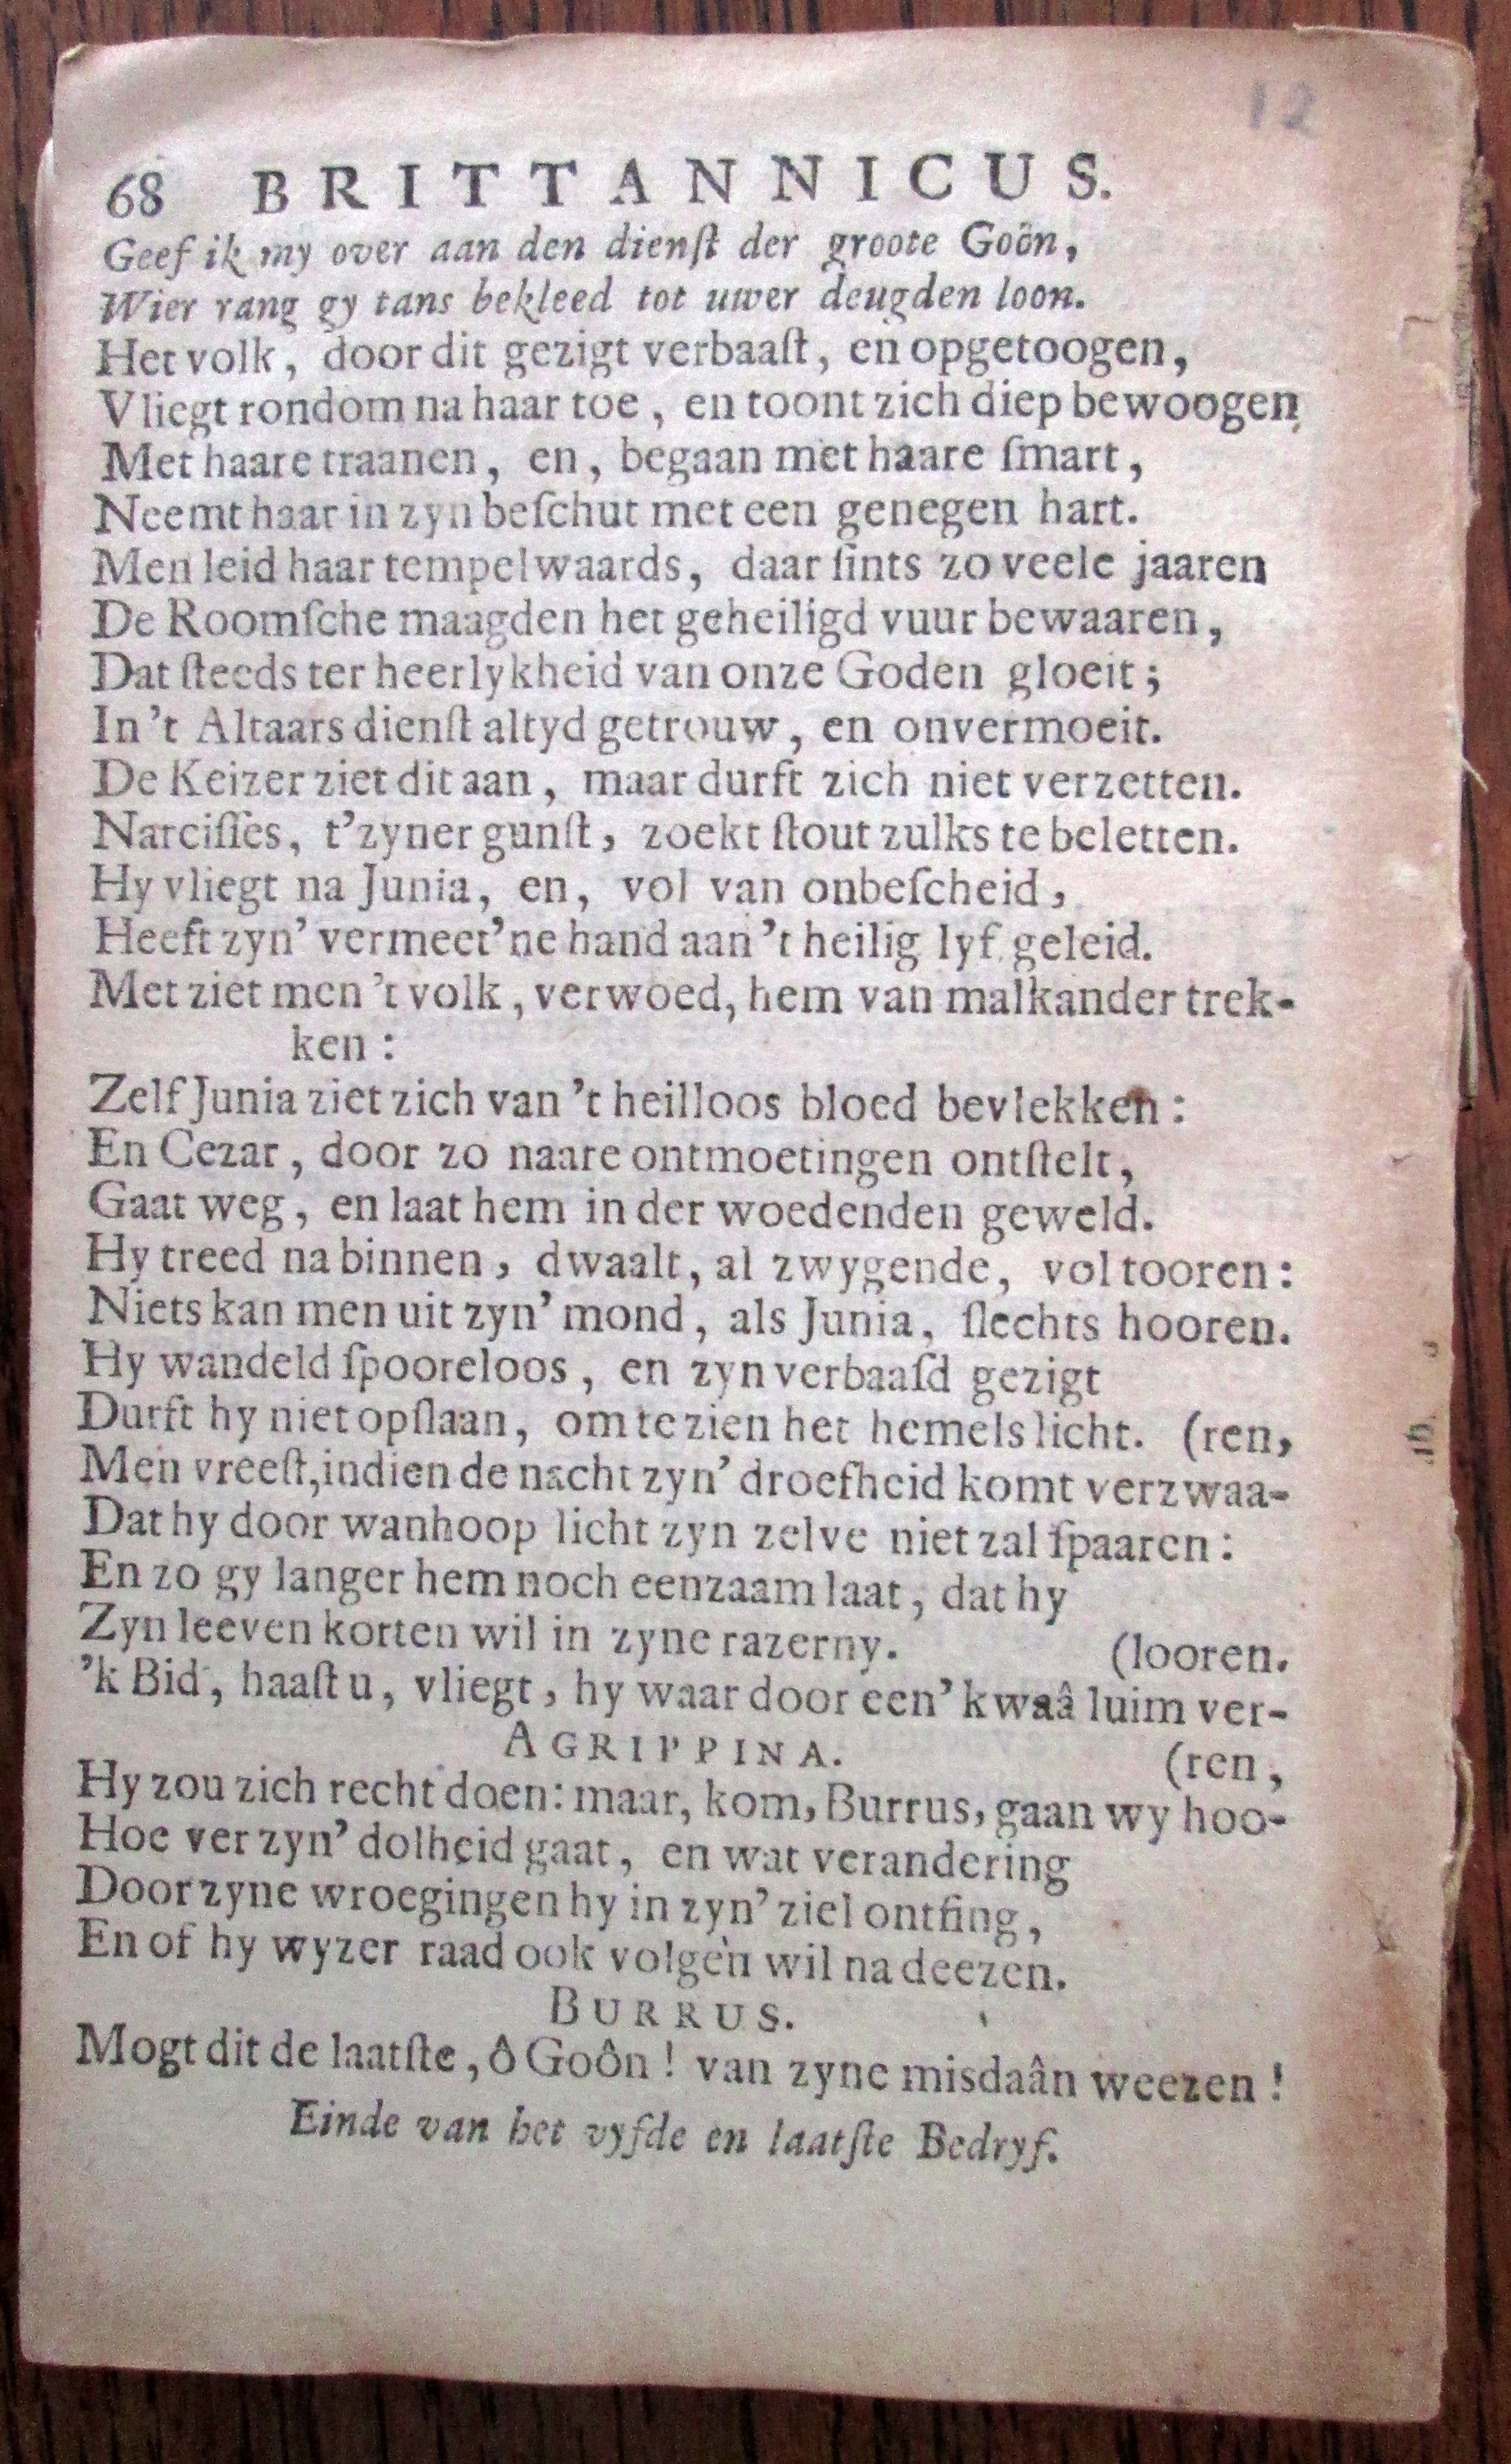 12
68 BRITTANNICUS.
Geef ik my over aan den dienſt der groote Goôn,
Wier rang gy tans bekleed tot uwer deugden loon.
Het volk, door dit gezigt verbaaſt, en opgetoogen,
Vliegt rondom na haar toe, en toont zich diep bewoogen
Met haare traanen, en, begaan met haare ſmart,
Neemt haar in zyn beſchut met een genegen hart.
Men leid haar tempelwaards, daar ſints zo veele jaaren
De Roomſche maagden het geheiligd vuur bewaaren,
Dat ſteeds ter heerlykheid van onze Goden gloeit;
In 't Altaars dienſt altyd getrouw, en onvermoeit.
De Keizer ziet dit aan, maar durft zich niet verzetten.
Narciſſes, t'zyner gunſt, zoekt ſtout zulks te beletten.
Hy vliegt na Junia, en, vol van onbeſcheid,
Heeft zyn' vermeet'ne hand aan 't heilig lyf geleid.
Met ziet men 't volk, verwoed, hem van malkander trek-
ken:
Zelf Junia ziet zich van 't heilloos bloed bevlekken:
En Cezar, door zo naare ontmoetingen ontſtelt,
Gaat weg, en laat hem in der woedenden geweld.
Hy treed na binnen, dwaalt, al zwygende, vol tooren:
Niets kan men uit zyn' mond, als Junia, ſlechts hooren.
Hy wandeld ſpooreloos, en zyn verbaaſd gezigt
Durft hy niet opſlaan, om te zien het hemels licht. (ren,
Men vreeſt, indien de nacht zyn' droefheid komt verzwaa-
Dat hy door wanhoop licht zyn zelve niet zal ſpaaren:
En zo gy langer hem noch eenzaam laat, dat hy
Zyn leeven korten wil in zyne razerny. (looren.
'k Bid, haaſt u, vliegt, hy waar door een' kwaâ luim ver-
AGRIPPINA. (ren,
Hy zou zich recht doen: maar, kom, Burrus, gaan wy hoo-
Hoe ver zyn' dolheid gaat, en wat verandering
Door zyne wroegingen hy in zyn' ziel ontfing,
En of hy wyzer raad ook volgen wil na deezen.
BURRUS.
Mogt dit de laatſte, ô Goôn! van zyne misdaân weezen!
Einde van het vyfde en laatſte Bedryf.